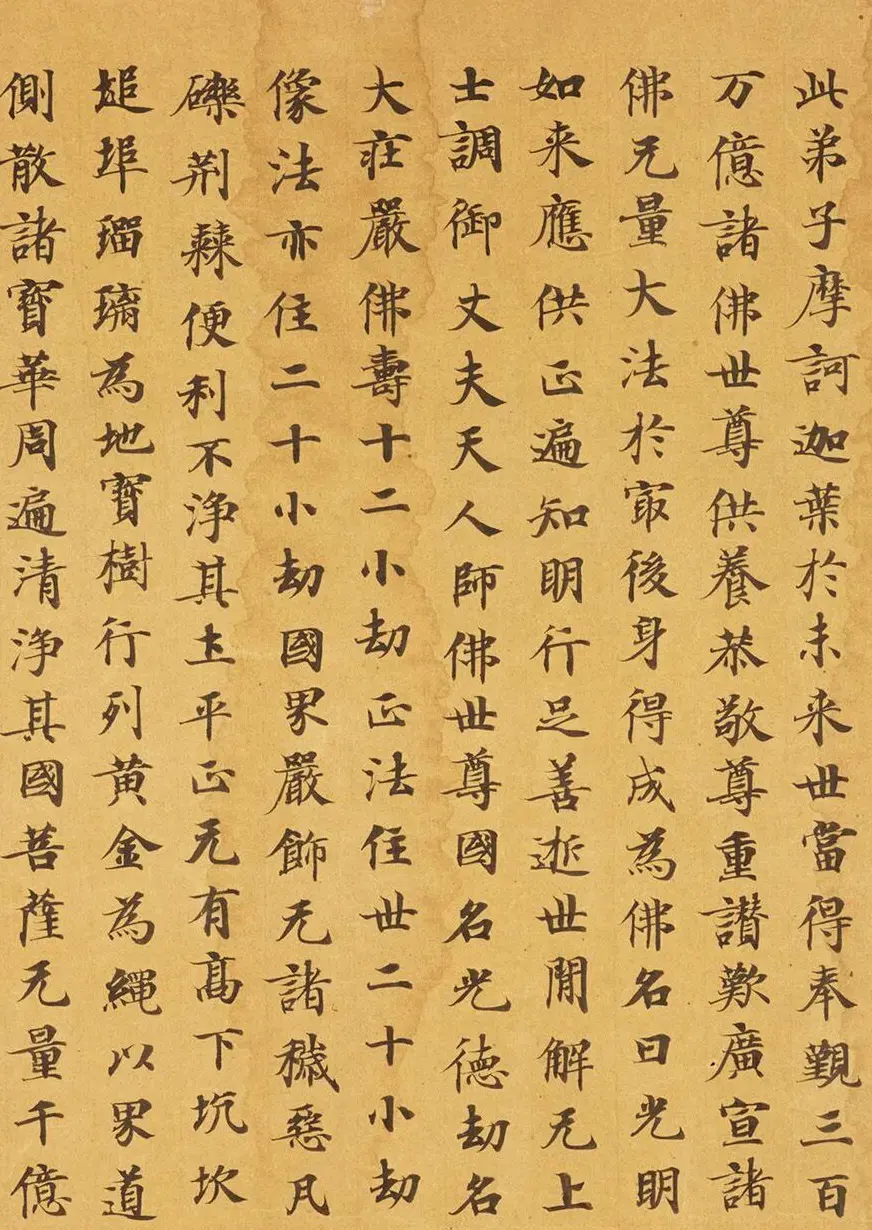 此弟子摩訶迦葉於未来世當得奉覲三百
万億諸佛世尊供養恭敬尊重讃歎廣宣諸
佛无量大法於冣後身得成為佛名曰光明
如来應供正遍知明行足善逝世閒解无上
士調御丈夫天人師佛世尊國名光德劫名
大莊嚴佛壽十二小劫正法住世二十小劫
像法亦住二十小劫國界嚴飾无諸穢惡凡
礫荆棘便利不浄其土平正无有髙下坑坎
埿埠瑠璃為地寶樹行列黄金為繩以界道
側散諸寶華周遍清浄其國菩薩无量千億